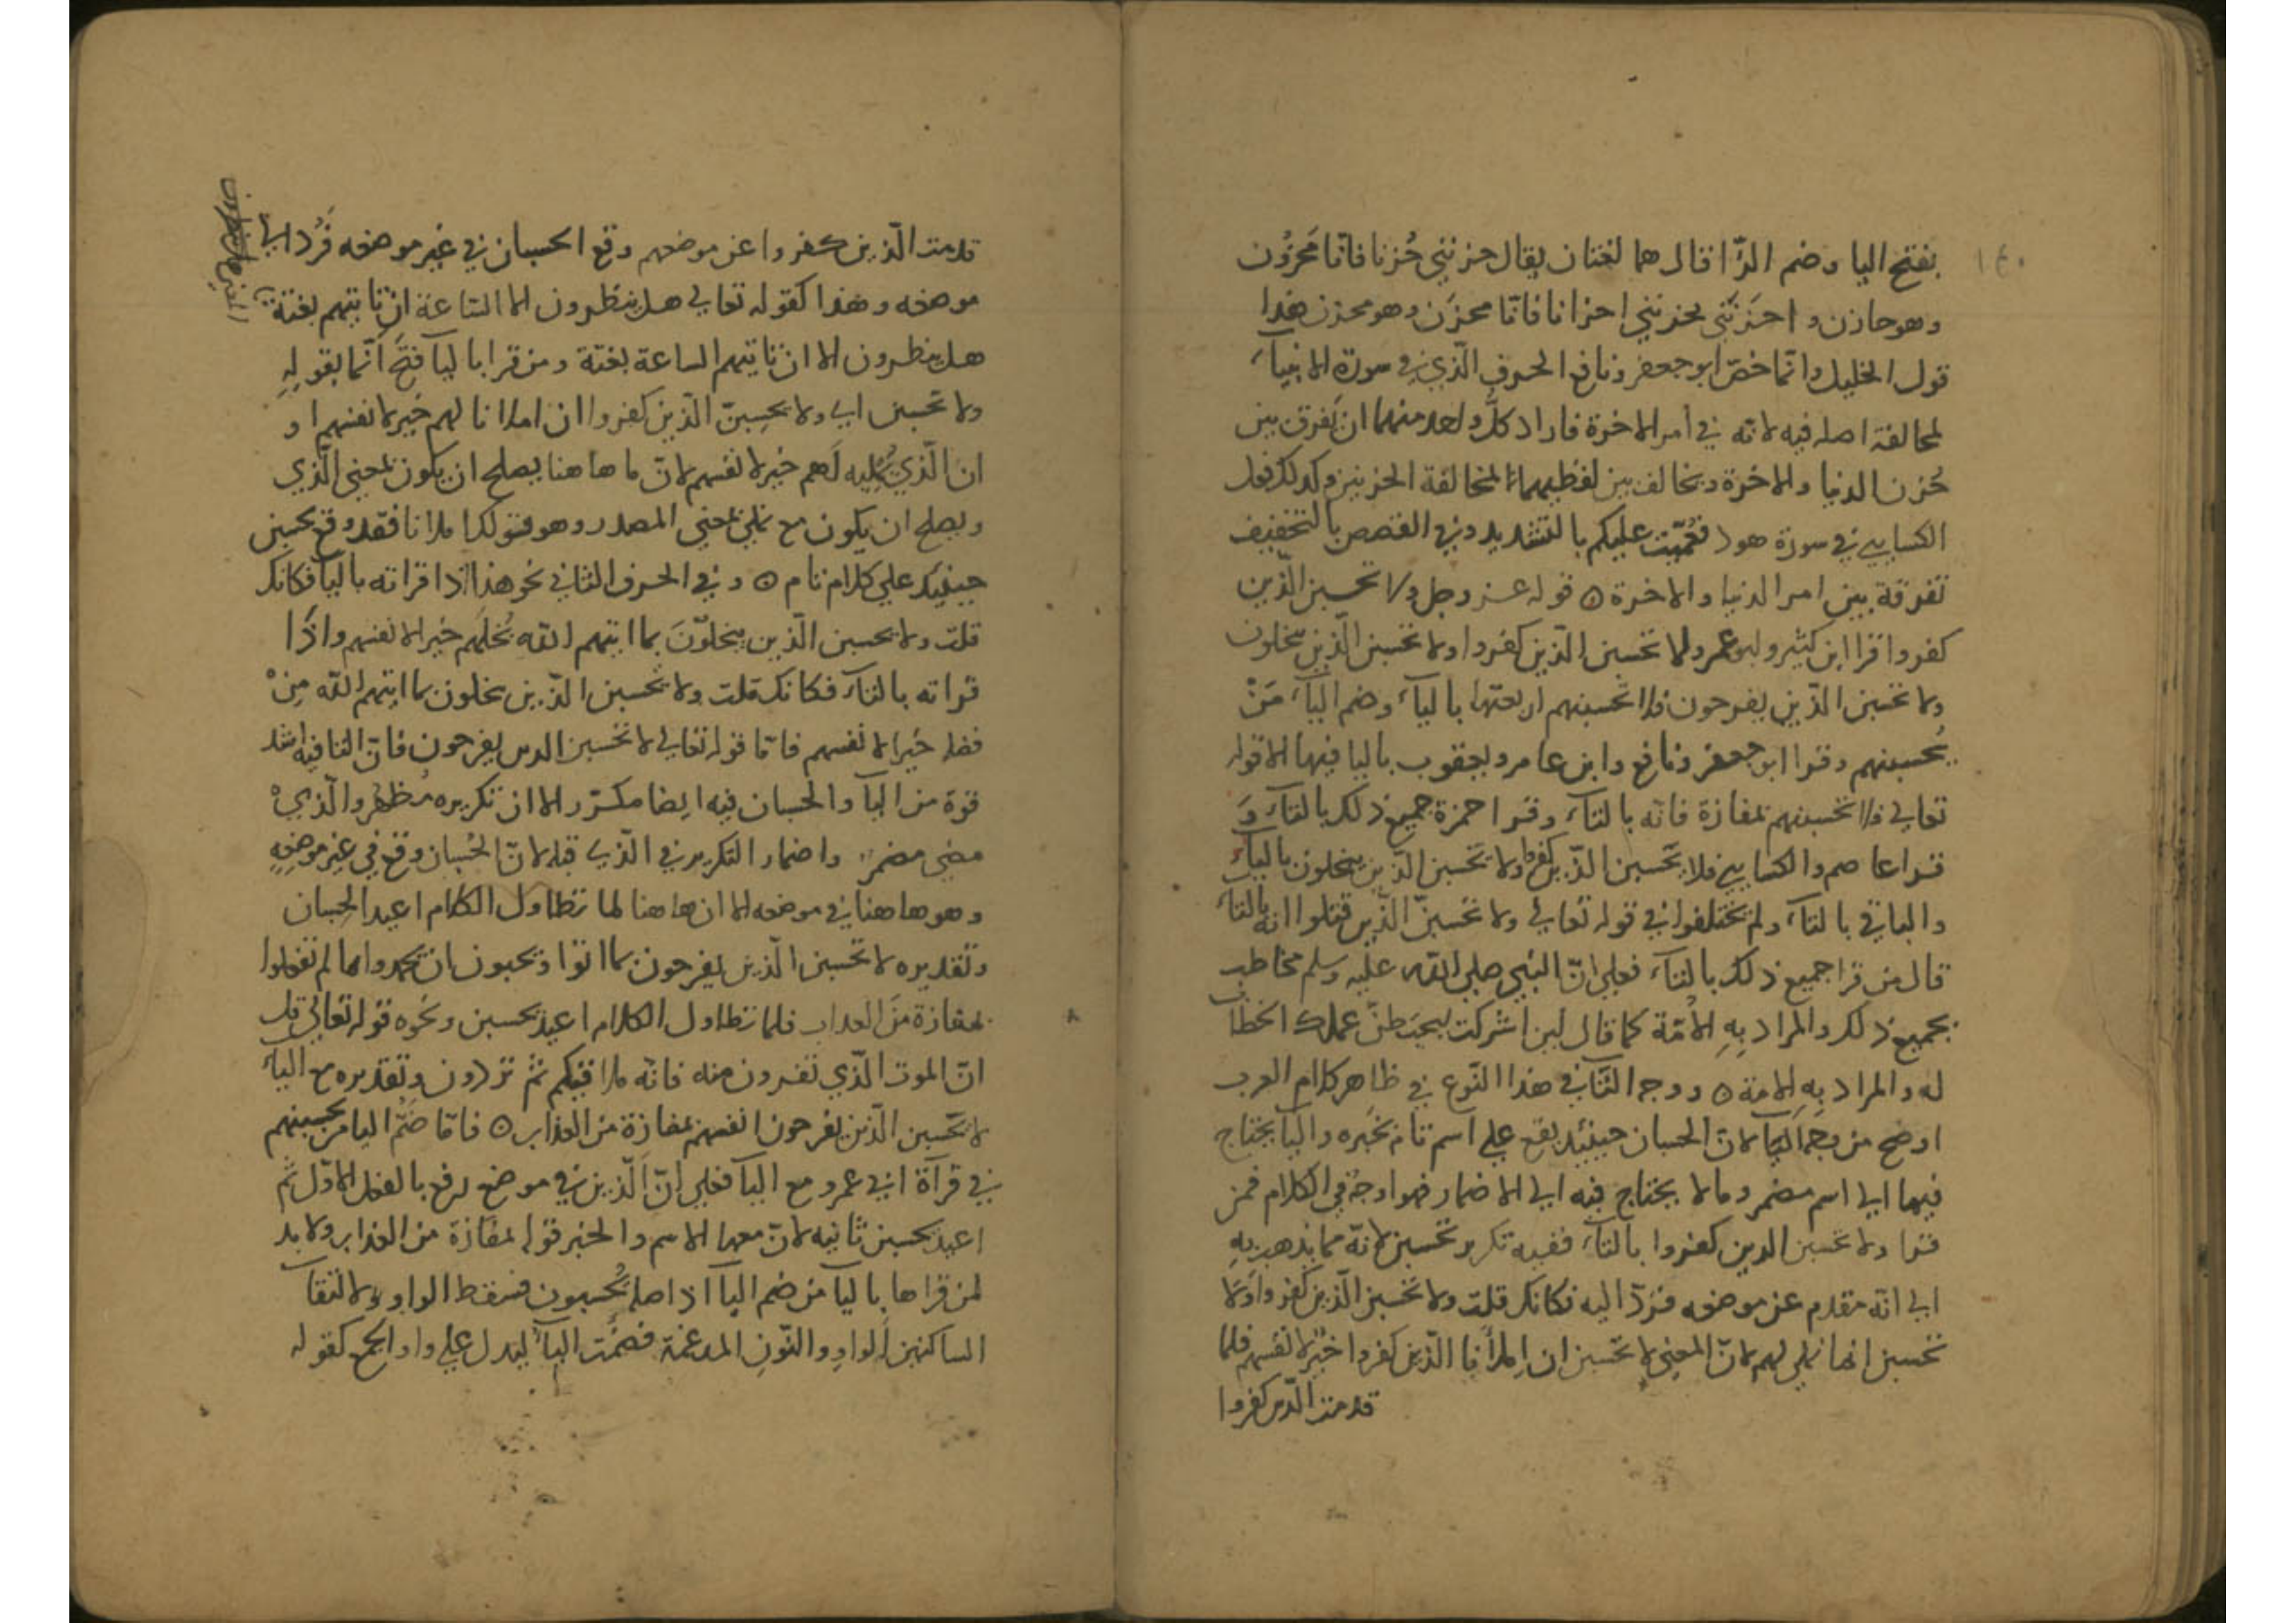 ١٤٠
بفتح اليا وضم الزّا قال هما لغتان يقال حزنني حُزنا فانّا مَحزُون
وهو حازن و احزَنَني يحزنني احزانا فانّا محزَن وهو محزن هذا
قول الخليل وانّما خصّ ابو جعفر ونافع الحرف الّذي في سورة الانبيآء
لمخالفة اصله فيه لانّه في أمر الاخرة فاراد كلّ واحد منهما ان يَفرق بين
حُزن الدنيا والاخرة ويخالف بين لفظيهما لمخالفة الحزنين وكذلك فعل
الكسايي في سورة هود فعُمّيت عليكم بالتشديد وفي القصص بالتخفيف
تفرقة بين امر الدنيا والاخرة ه قوله عز وجل ولا تحسبن الّذين
كفروا قرا ابن كثير وابو عمرو ولا تحسبن الذين كفروا ولا تحسبن الّذين يبخلون
ولا تحسبن الذّين يفرحون فلا تحسبنهم اربعتها باليآء وضم البآء مَنْ
يُحسبنهم وقرا ابو جعفر ونافع وابن عامر ويعقوب باليا فيها الا قوله
تعالي فلا تحسبنهم بمفازة فانّه بالتآء وقرا حمزة جميع ذلك بالتآء وَ
قرا عاصم والكسايي فلا يَحسبن الذّين كفروا ولا تحسبن الذّين يبخلون باليآء
والباقي بالتآء ولم يختلفوا في قوله تعالي ولا تحسبنّ الّذين قتلوا انّه بالتآء
قال من قرا جميع ذلك بالتآء فعلي انّ النبي صلي الله عليه وسلم مخاطب
بجميع ذلك والمراد بِهِ الامّة كما قال لين اشركت ليحبَطنّ عملك الخطاب
له والمراد بِهِ الامة ه ووجه الثّاني هذا النّوع في ظاهر كلام العرب
اوضح من وجه اليآ لانّ الحسبان حينيذ يقع علي اسم تام بخَبره واليآ يحتاج
فيها الي اسم مضمر وما لا يحتاج فيه الي الاضمار فهو اوجهُ في الكلام فمن
قرا ولا تحسبن الدين كفروا بالتآء ففيه تكرير تحسبن لانّه مما يذهب بِهِ
الي انّه مقدم عن موضعه فنردّ اليه فكانك قلت ولا تحسبن الّذين كفروا ولا
تحسبن انما نملي لهم لانّ المعني لا تحسبن ان املآنا الّذين كفروا خيرٌ لانفسهم فلما
قدمت الّذين كفروا
قدمت الّذين كفروا عن موضعهم وقع الحسبان في غير موضعه فَرُد الي
موضعه وهذا كقوله تعالي هل ينظرون الا الساعة ان تاتيهم بغتة
هل ينظرون الا ان تاتيهم الساعة بغتة ومن قرا باليآ فَتَح انّما بقولِهِ
ولا تحسبن اي ولا يحسِبنّ الّذين كفروا ان املانا لهم خير لانفسهم او
ان الّذي نُمليه لَهم خير لانفسهم لانّ ما هاهنا يصلح ان يكون بمعني الّذي
ويصلح ان يكون مع نملي بمعني المصدر وهو قولك املانا فقد وقع يحسبن
حينيذ علي كلام تام ه وفي الحرف الثاني نحو هذا اذا قراته باليآ فكانك
قلت ولا يحسبن الّذين يبخلوّنَ بما اتيهم الله بُخلَهم خيرا لانفسهم واذَا
قراته بالتآء فكانك قلت ولا تحسبن الذّين يبخلون بما اتيهم الله مِنْ
فضله خيرا لانفسهم فامّا قوله تعالي لا تحسبن الدين يفرحون فانّ التا فيه اشد
قوّة من اليآ والحسبان فيه ايضا مكرّر الا ان تكريره مُظهر والّذي
مضي مضمر واضمار التكرير في الّذي قبله لانّ الحُسبان وقع في غيِر موضِعِهِ
وهو هاهنا في موضعه الا ان هاهنا لما تطاول الكلام اعيد الحِسبان
وتقديره لا تحسبن الّذين يفرحون بما اتوا ويحبون ان يحمدوا بما لم يفعلوا
بمفازة منَ العذاب فلما تطاول الكلام اعيد تحسبن ونَحوه قوله تعالي قل
انّ الموت الّذي تفرون منه فانّه ملاقيكم ثمّ تردون وتقديره مع اليآء
لا يَحسبن الّذين يفرحون انفسهم بمفازة من العذاب ه فامّا ضَمّ البا من يحسبنهم
في قرآة ابي عمرو مع اليآ فعلي انّ الّذين في موضع رفع بالفعل الاوّل ثم
اعيد يحسبن ثانيه لانّ معها الاسم والخبر قوله بمفازة من العذاب ولا بد
لمن قراها باليآ من ضم البآ اذ اصله يُحسبون فسقط الواو ولالتقآ
الساكنين الواوِ والنّونِ المدغمة فضُمّت البآء ليدل علي واو الجمع كقوله